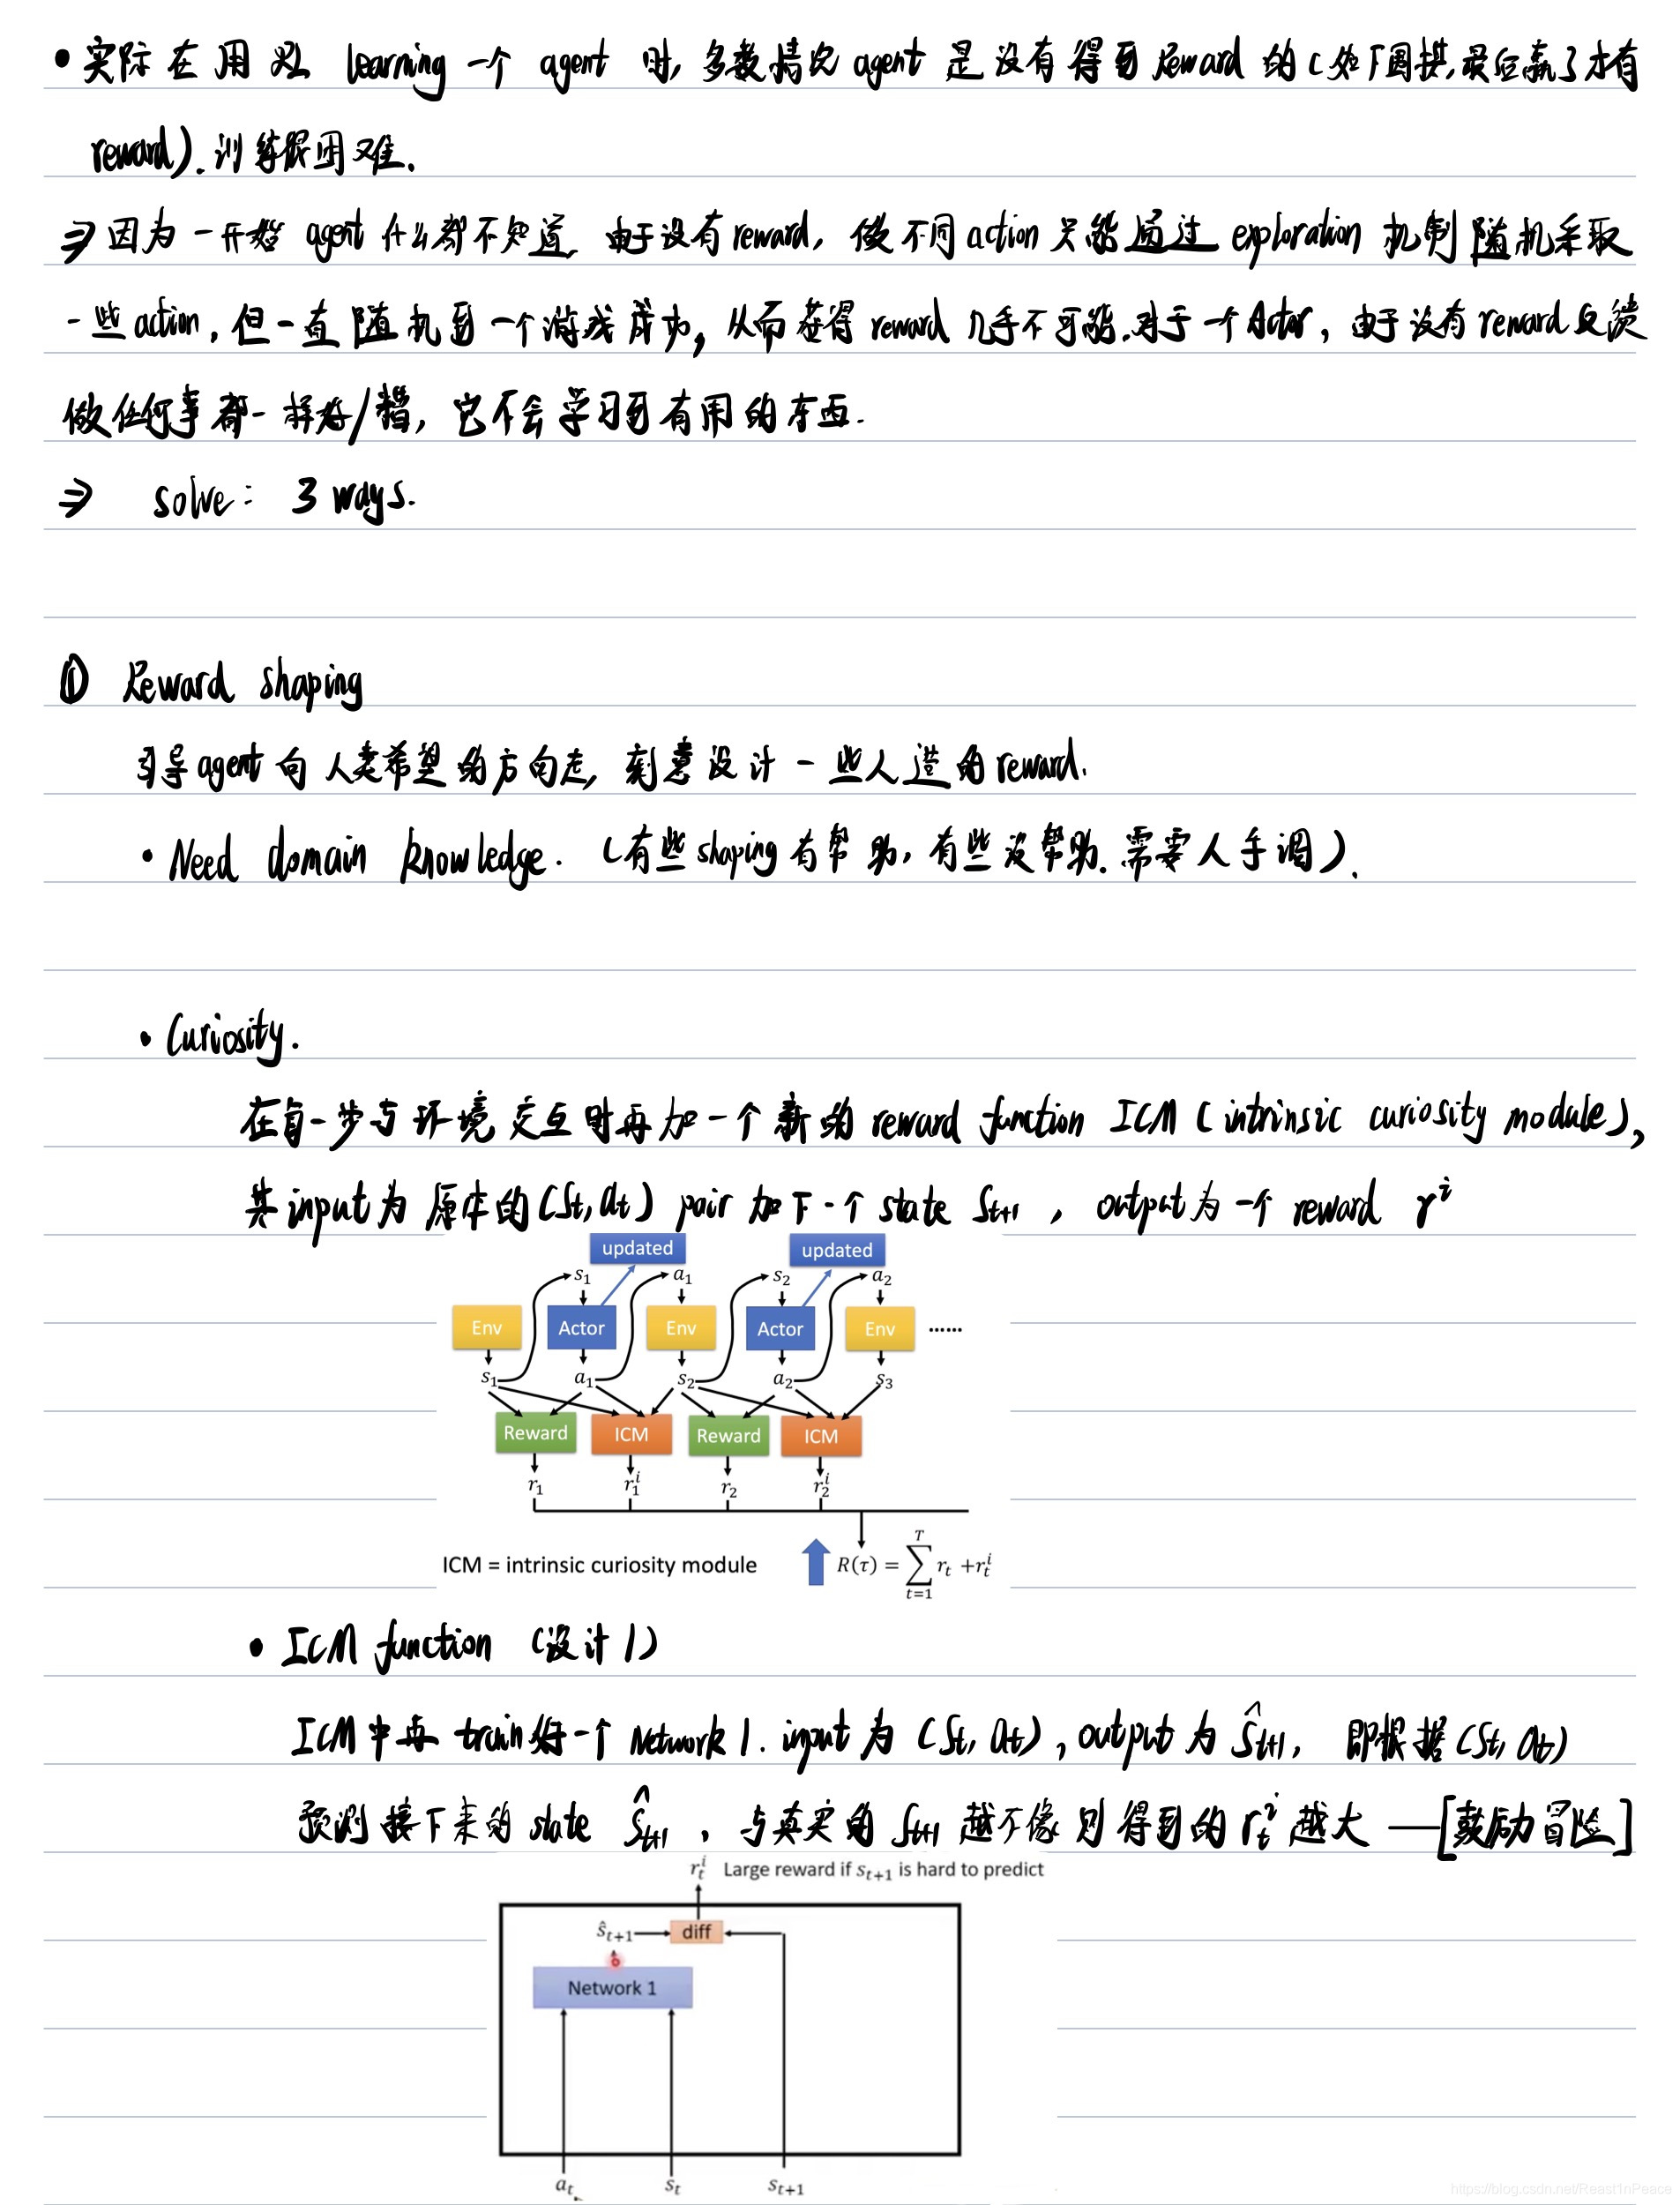 • 实际在用 RL learning 一个 agent 时, 多数情况 agent 是没有得到 Reward 的 (如下围棋, 最后赢了才有
reward). 训练很困难.
⇒ 因为一开始 agent 什么都不知道, 由于没有 reward, 做不同 action 只能通过 exploration 机制随机采取
一些 action, 但一直随机到一个游戏成功, 从而获得 reward 几乎不可能. 对于一个 Actor, 由于没有 reward 反馈
做任何事都一样好/糟, 它不会学习到有用的东西.
⇒ solve: 3 ways.
① Reward shaping
引导 agent 向人类希望的方向走, 刻意设计一些人造的 reward.
• Need domain knowledge. (有些 shaping 有帮助, 有些没帮助. 需要人手调).
• Curiosity.
在每一步与环境交互时再加一个新的 reward function ICM (intrinsic curiosity module),
其 input 为原本的 (St, at) pair 加下一个 state St+1, output 为一个 reward rⁱ
updated updated
s₁ a₁ s₂ a₂
Env Actor Env Actor Env ······
s₁ a₁ s₂ a₂ s₃
Reward ICM Reward ICM
r₁ r₁ⁱ r₂ r₂ⁱ
ICM = intrinsic curiosity module R(τ) = ∑_{t=1}^{T} r_t + r_t^i
• ICM function (设计1)
ICM 中再 train 好一个 Network 1. input 为 (St, at), output 为 Ŝt+1, 即根据 (St, at)
预测接下来的 state Ŝt+1, 与真实的 St+1 越不像则得到的 r_t^i 越大 —[鼓励冒险]
r_t^i Large reward if s_{t+1} is hard to predict
ŝ_{t+1} diff
Network 1
a_t s_t s_{t+1}
https://blog.csdn.net/Reast1nPeace